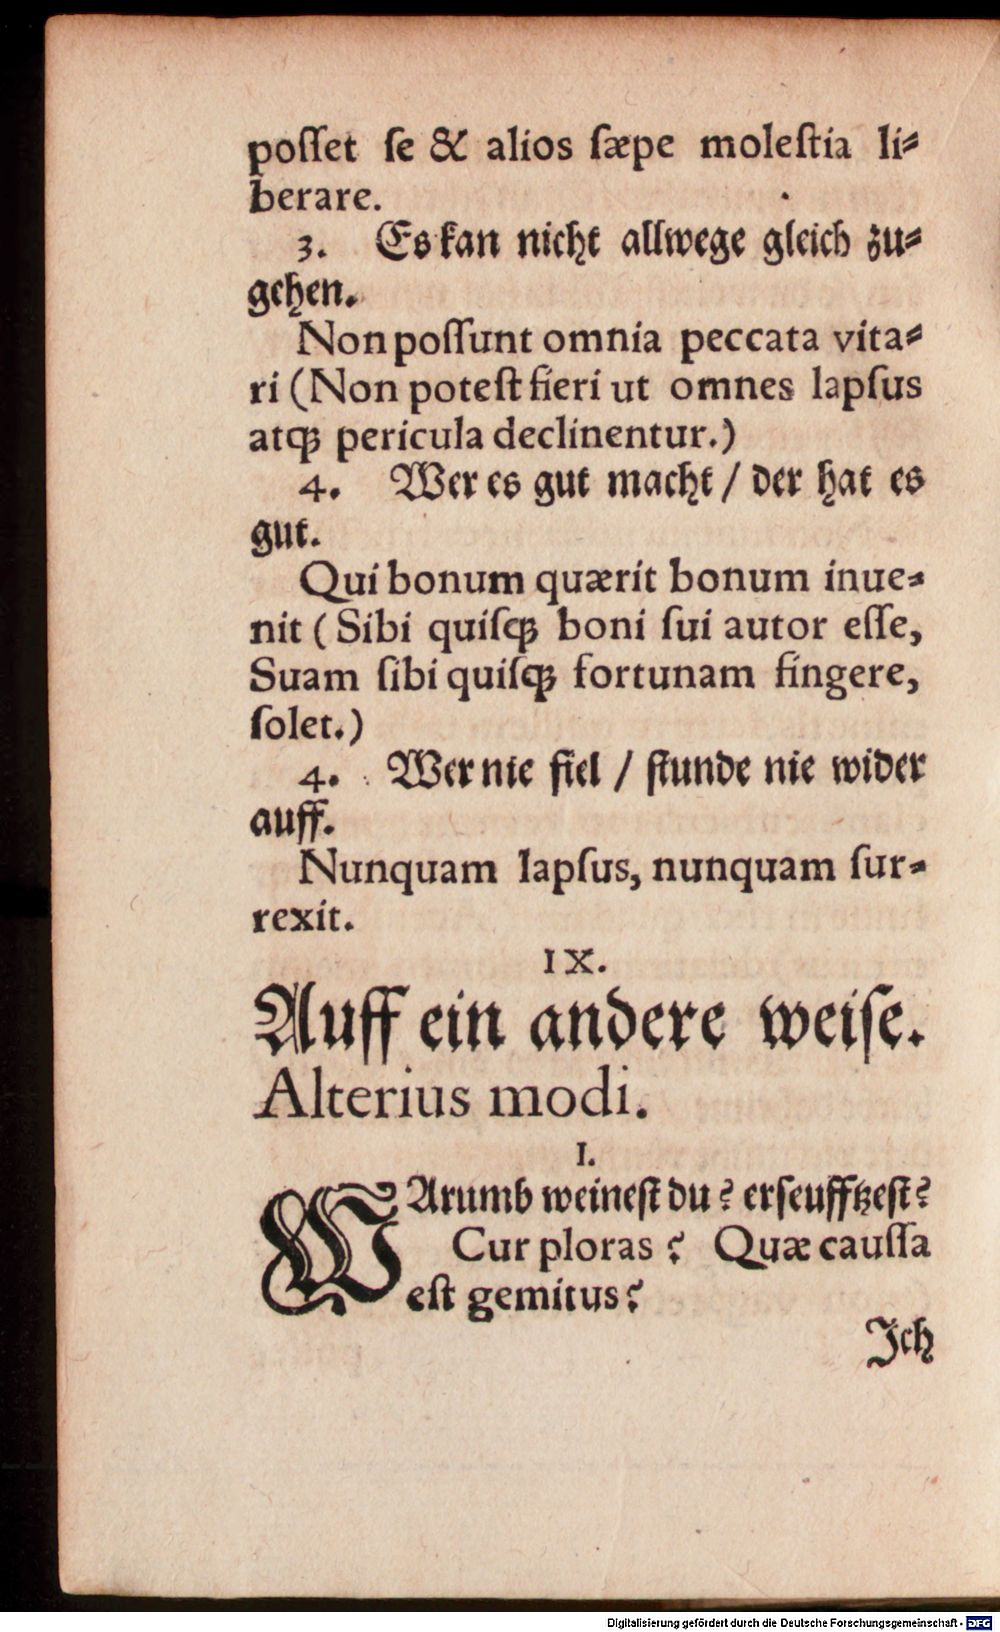 poſſet ſe & alios ſæpe moleſtia li⸗
berare.
3. Es kan nicht allwege gleich zu⸗
gehen.
Non poſſunt omnia peccata vita⸗
ri (Non poteſt fieri ut omnes lapſus
atq́ꝫ pericula declinentur.)
4. Wer es gut macht / der hat es
gut.
Qui bonum quærit bonum inue⸗
nit (Sibi quiſq́ꝫ boni ſui autor eſſe,
Suam ſibi quiſq́ꝫ fortunam fingere,
ſolet.)
4. Wer nie fiel / ſtunde nie wider
auff.
Nunquam lapſus, nunquam ſur⸗
rexit.
IX.
Auff ein andere weiſe.
Alterius modi.
I.
WArumb weineſt du? erſeufftzeſt?
Cur ploras? Quæ cauſſa
eſt gemitus?
Ich
Digitalisierung gefördert durch die Deutsche Forschungsgemeinschaft - DFG